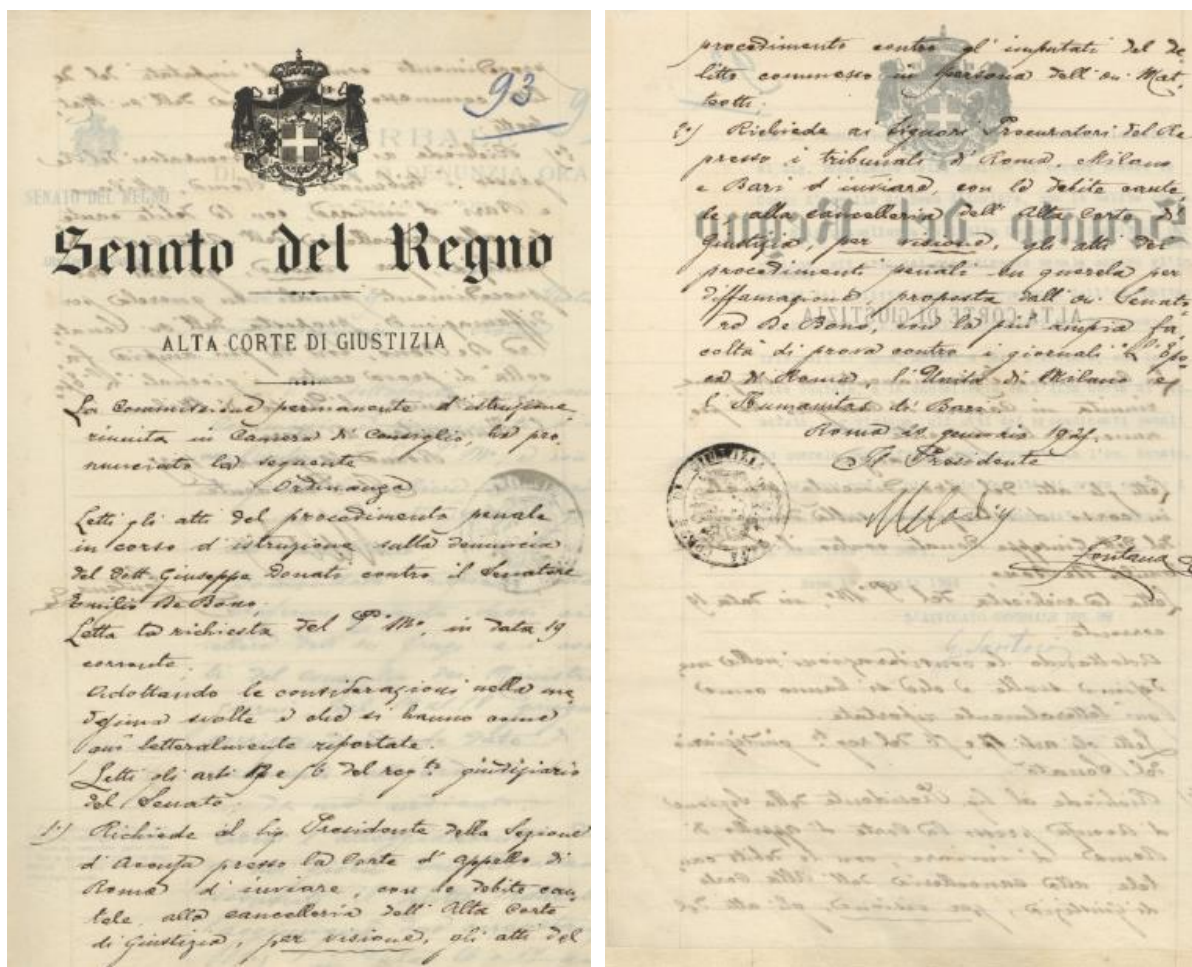 93
Senato del Regno
ALTA CORTE DI GIUSTIZIA
La Commissione permanente d'istruzione,
riunita in Camera di Consiglio, ha pro-
nunciato la seguente
Ordinanza
Letti gli atti del procedimento penale
in corso d'istruzione sulla denuncia
del Dott. Giuseppe Donati contro il Senatore
Emilio De Bono,
Letta la richiesta del P. Mo, in data 19
corrente.
Adottando le considerazioni nella me-
desima svolte e che si hanno come
qui letteralmente riportate.
Letti gli arti 17 e 56 del regto giudiziario
del Senato.
1°) Richiede al Sig. Presidente della Sezione
d'Accusa presso la Corte d'Appello di
Roma d'inviare, con le debite cau-
tele, alla cancelleria dell'Alta Corte
di Giustizia, per visione, gli atti del
procedimento contro gl'imputati del de-
litto commesso in persona dell'on. Mat-
teotti.
2°) Richiede ai Signori Procuratori del Re
presso i tribunali di Roma, Milano
e Bari d'inviare, con le debite caute-
le, alla cancelleria dell'Alta Corte di
Giustizia, per visione, gli atti dei
procedimenti penali su querela per
diffamazione proposta dall'on. Senato-
re De Bono, con la più ampia fa-
coltà di prova contro i giornali "L'Epo-
ca di Roma, l'Unità di Milano e
l'Humanitas di Bari.
Roma gennaio 1925.
Il Presidente
Fontana